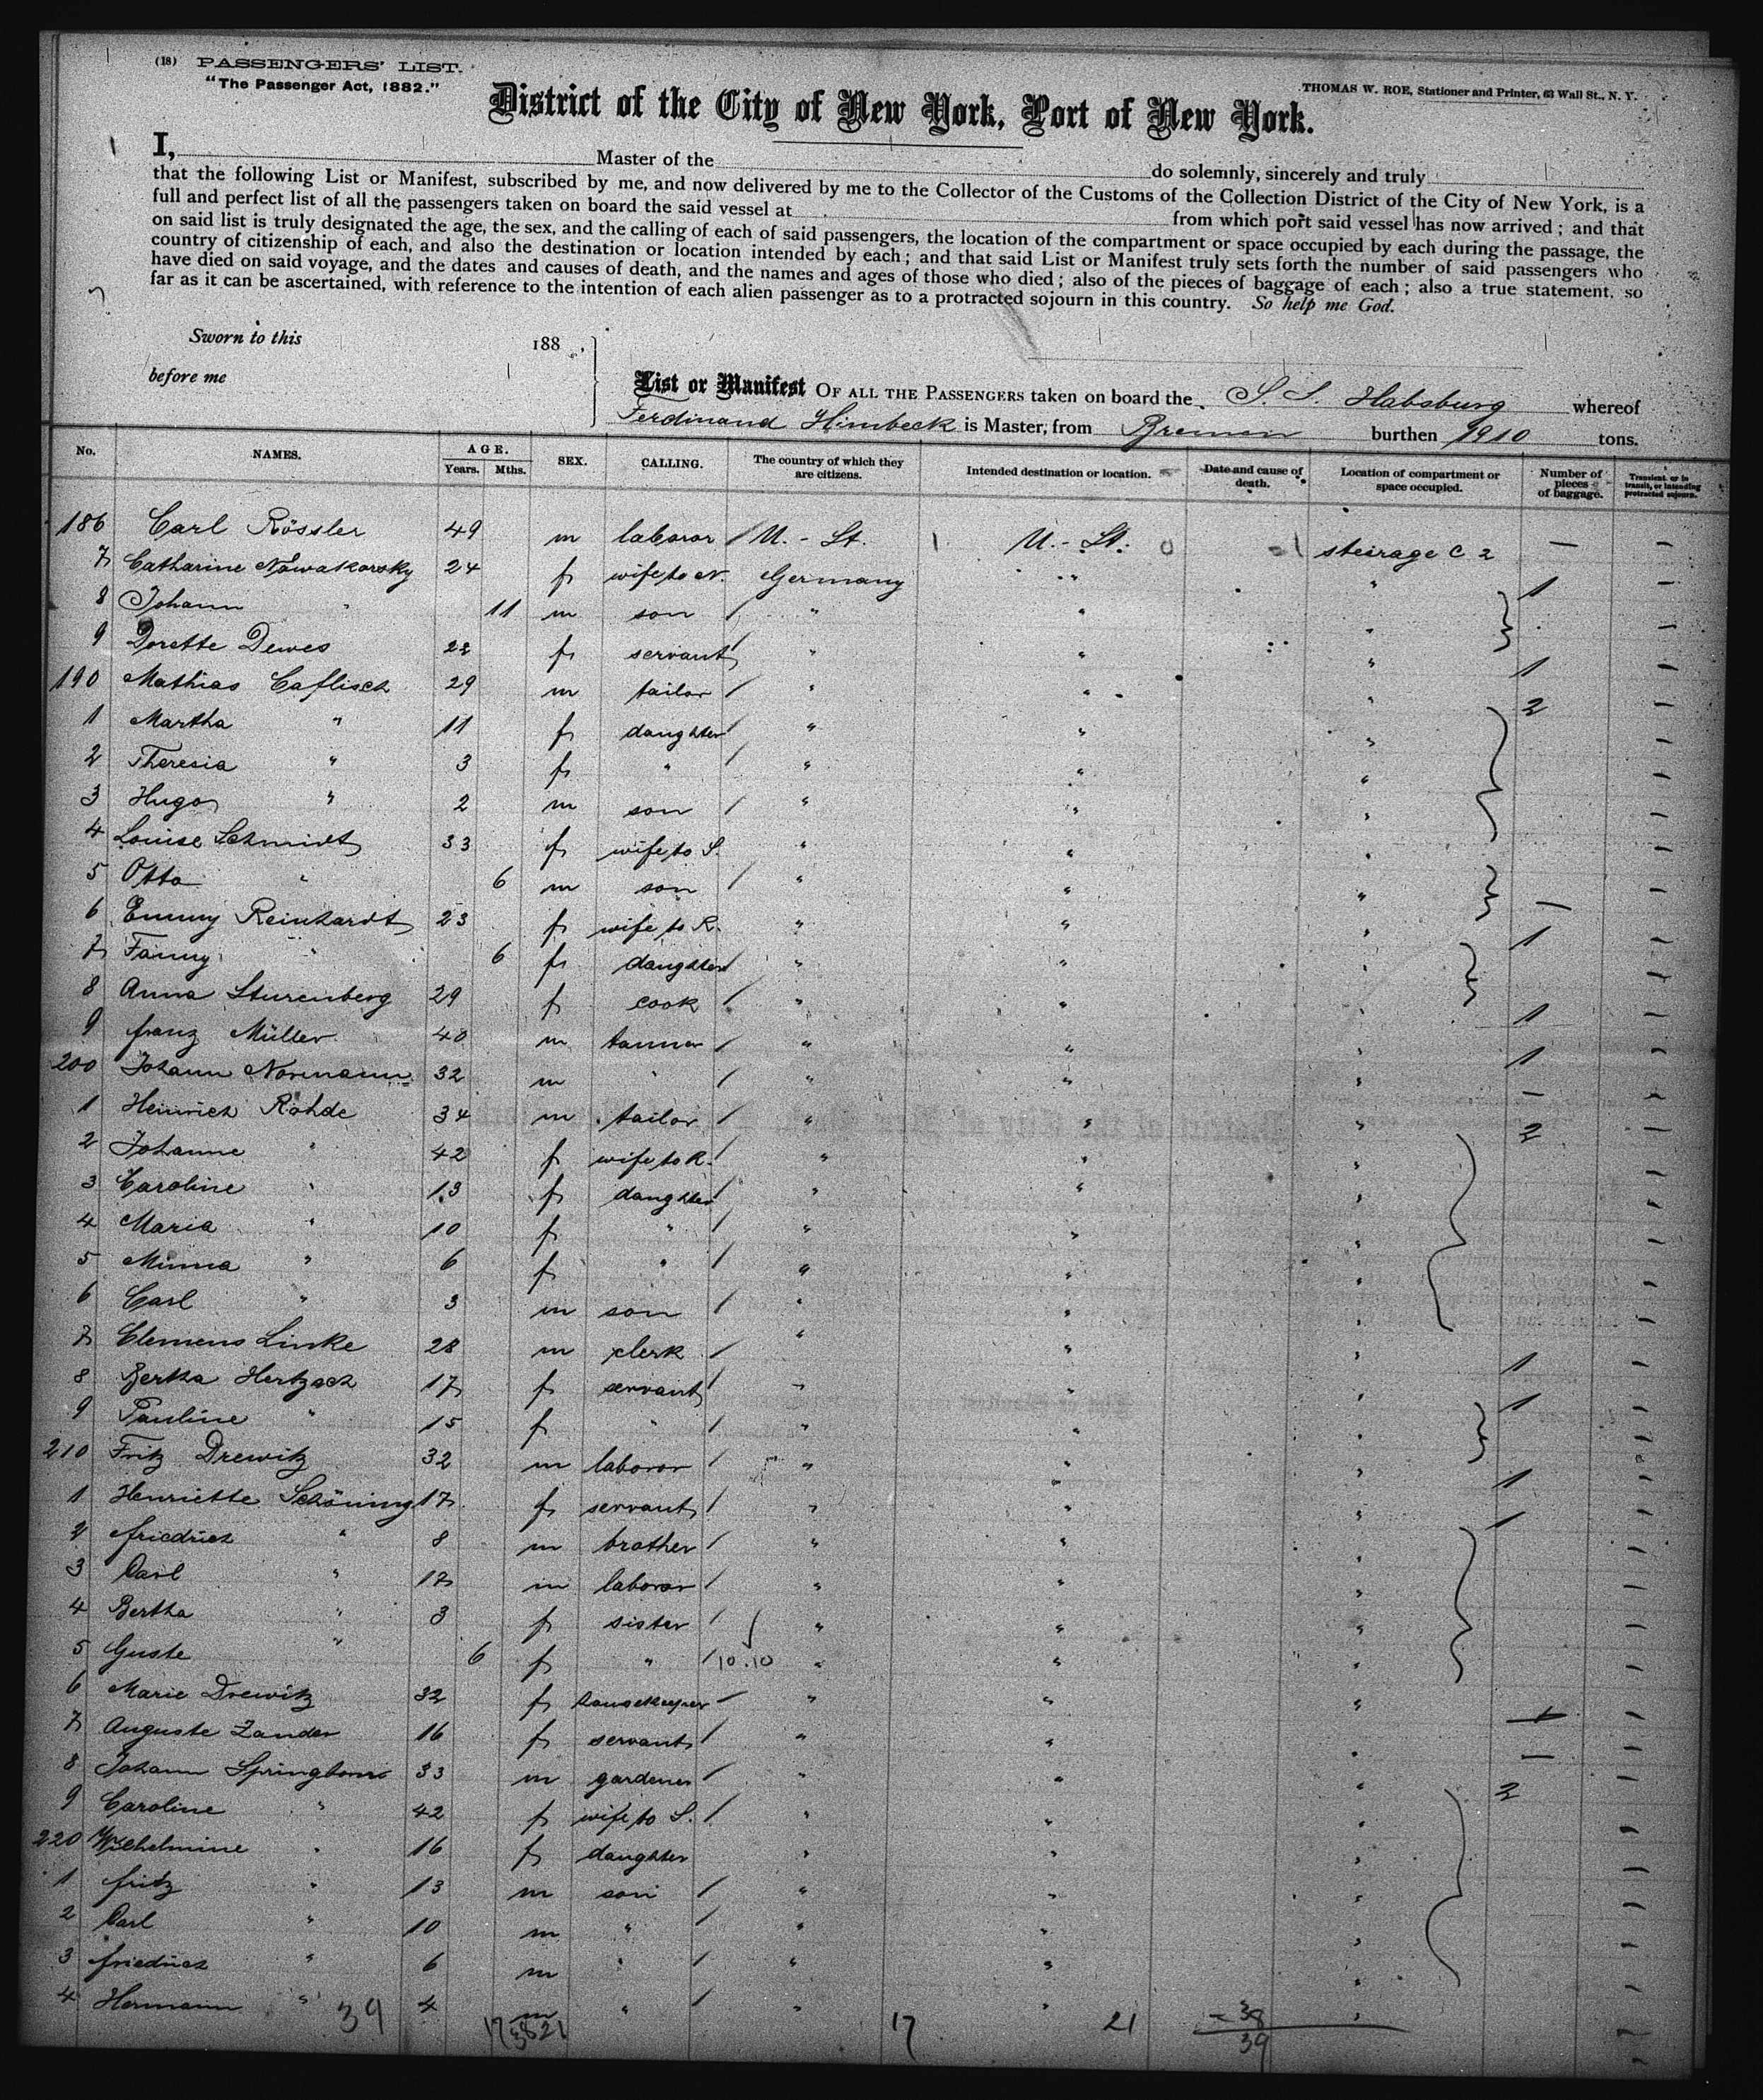 (18) PASSENGERS' LIST.
"The Passenger Act, 1882."
THOMAS W. ROE, Stationer and Printer, 63 Wall St., N. Y.
District of the City of New York, Port of New York.
I, Master of the do solemnly, sincerely and truly
that the following List or Manifest, subscribed by me, and now delivered by me to the Collector of the Customs of the Collection District of the City of New York, is a
full and perfect list of all the passengers taken on board the said vessel at from which port said vessel has now arrived; and that
on said list is truly designated the age, the sex, and the calling of each of said passengers, the location of the compartment or space occupied by each during the passage, the
country of citizenship of each, and also the destination or location intended by each; and that said List or Manifest truly sets forth the number of said passengers who
have died on said voyage, and the dates and causes of death, and the names and ages of those who died; also of the pieces of baggage of each; also a true statement, so
far as it can be ascertained, with reference to the intention of each alien passenger as to a protracted sojourn in this country. So help me God.
Sworn to this 188 ,
before me
List or Manifest OF ALL THE PASSENGERS taken on board the S. S. Habsburg whereof
Ferdinand Himbeck is Master, from Bremen burthen 1910 tons.
No. NAMES. AGE. Years. Mths. SEX. CALLING. The country of which they are citizens. Intended destination or location. Date and cause of death. Location of compartment or space occupied. Number of pieces of baggage. Transient or in transit, or intending protracted sojourn.
186 Carl Rössler 49 m laboror / U. - St. U. - St. steirage C 2 — –
7 Catharine Nowakorsky 24 f wife to N. Germany " " 1 –
8 Johann " 11 m son / " " " –
9 Dorette Dewes 22 f servant / " " " 1 –
190 Mathias Caflisch 29 m tailor / " " " 2 –
1 Martha " 11 f daughter / " " " –
2 Theresia " 3 f " / " " " –
3 Hugo " 2 m son / " " " –
4 Louise Schmidt 33 f wife to S. " " " –
5 Otto " 6 m son / " " " — –
6 Emmy Reinhardt 23 f wife to R. " " " 1 –
7 Fanny " 6 f daughter / " " " –
8 Anna Sturenberg 29 f cook / " " " 1 –
9 franz Müller 40 m tanner / " " " 1 –
200 Johann Normann 32 m " / " " " — –
1 Heinrich Rohde 34 m tailor / " " " 2 –
2 Johanne " 42 f wife to R. / " " " –
3 Caroline " 13 f daughter / " " " –
4 Maria " 10 f " / " " " –
5 Minna " 6 f " / " " " –
6 Carl " 3 m son / " " " –
7 Clemens Linke 28 m clerk / " " " 1 –
8 Bertha Hertzsch 17 f servant / " " " 1 –
9 Pauline " 15 f " / " " " –
210 Fritz Drewitz 32 m laboror / " " " 1 –
1 Henriette Schöning 17 f servant / " " " 1 –
2 friedrich " 8 m brother / " " " –
3 Carl " 17 m laboror / " " " –
4 Bertha " 3 f sister / " " " –
5 Guste " 6 f " / 10.10 " " " –
6 Marie Drewitz 32 f housekeeper / " " " 1 –
7 Auguste Zander 16 f servant / " " " — –
8 Johann Springborn 33 m gardener / " " " 2 –
9 Caroline " 42 f wife to S. / " " " –
220 Wilhelmine " 16 f daughter " " " –
1 fritz " 13 m son / " " " –
2 Carl " 10 m " / " " " –
3 friedrich " 6 m " / " " " –
4 Hermann " 4 m " / " " " –
39 17 38 21 17 21 38
39